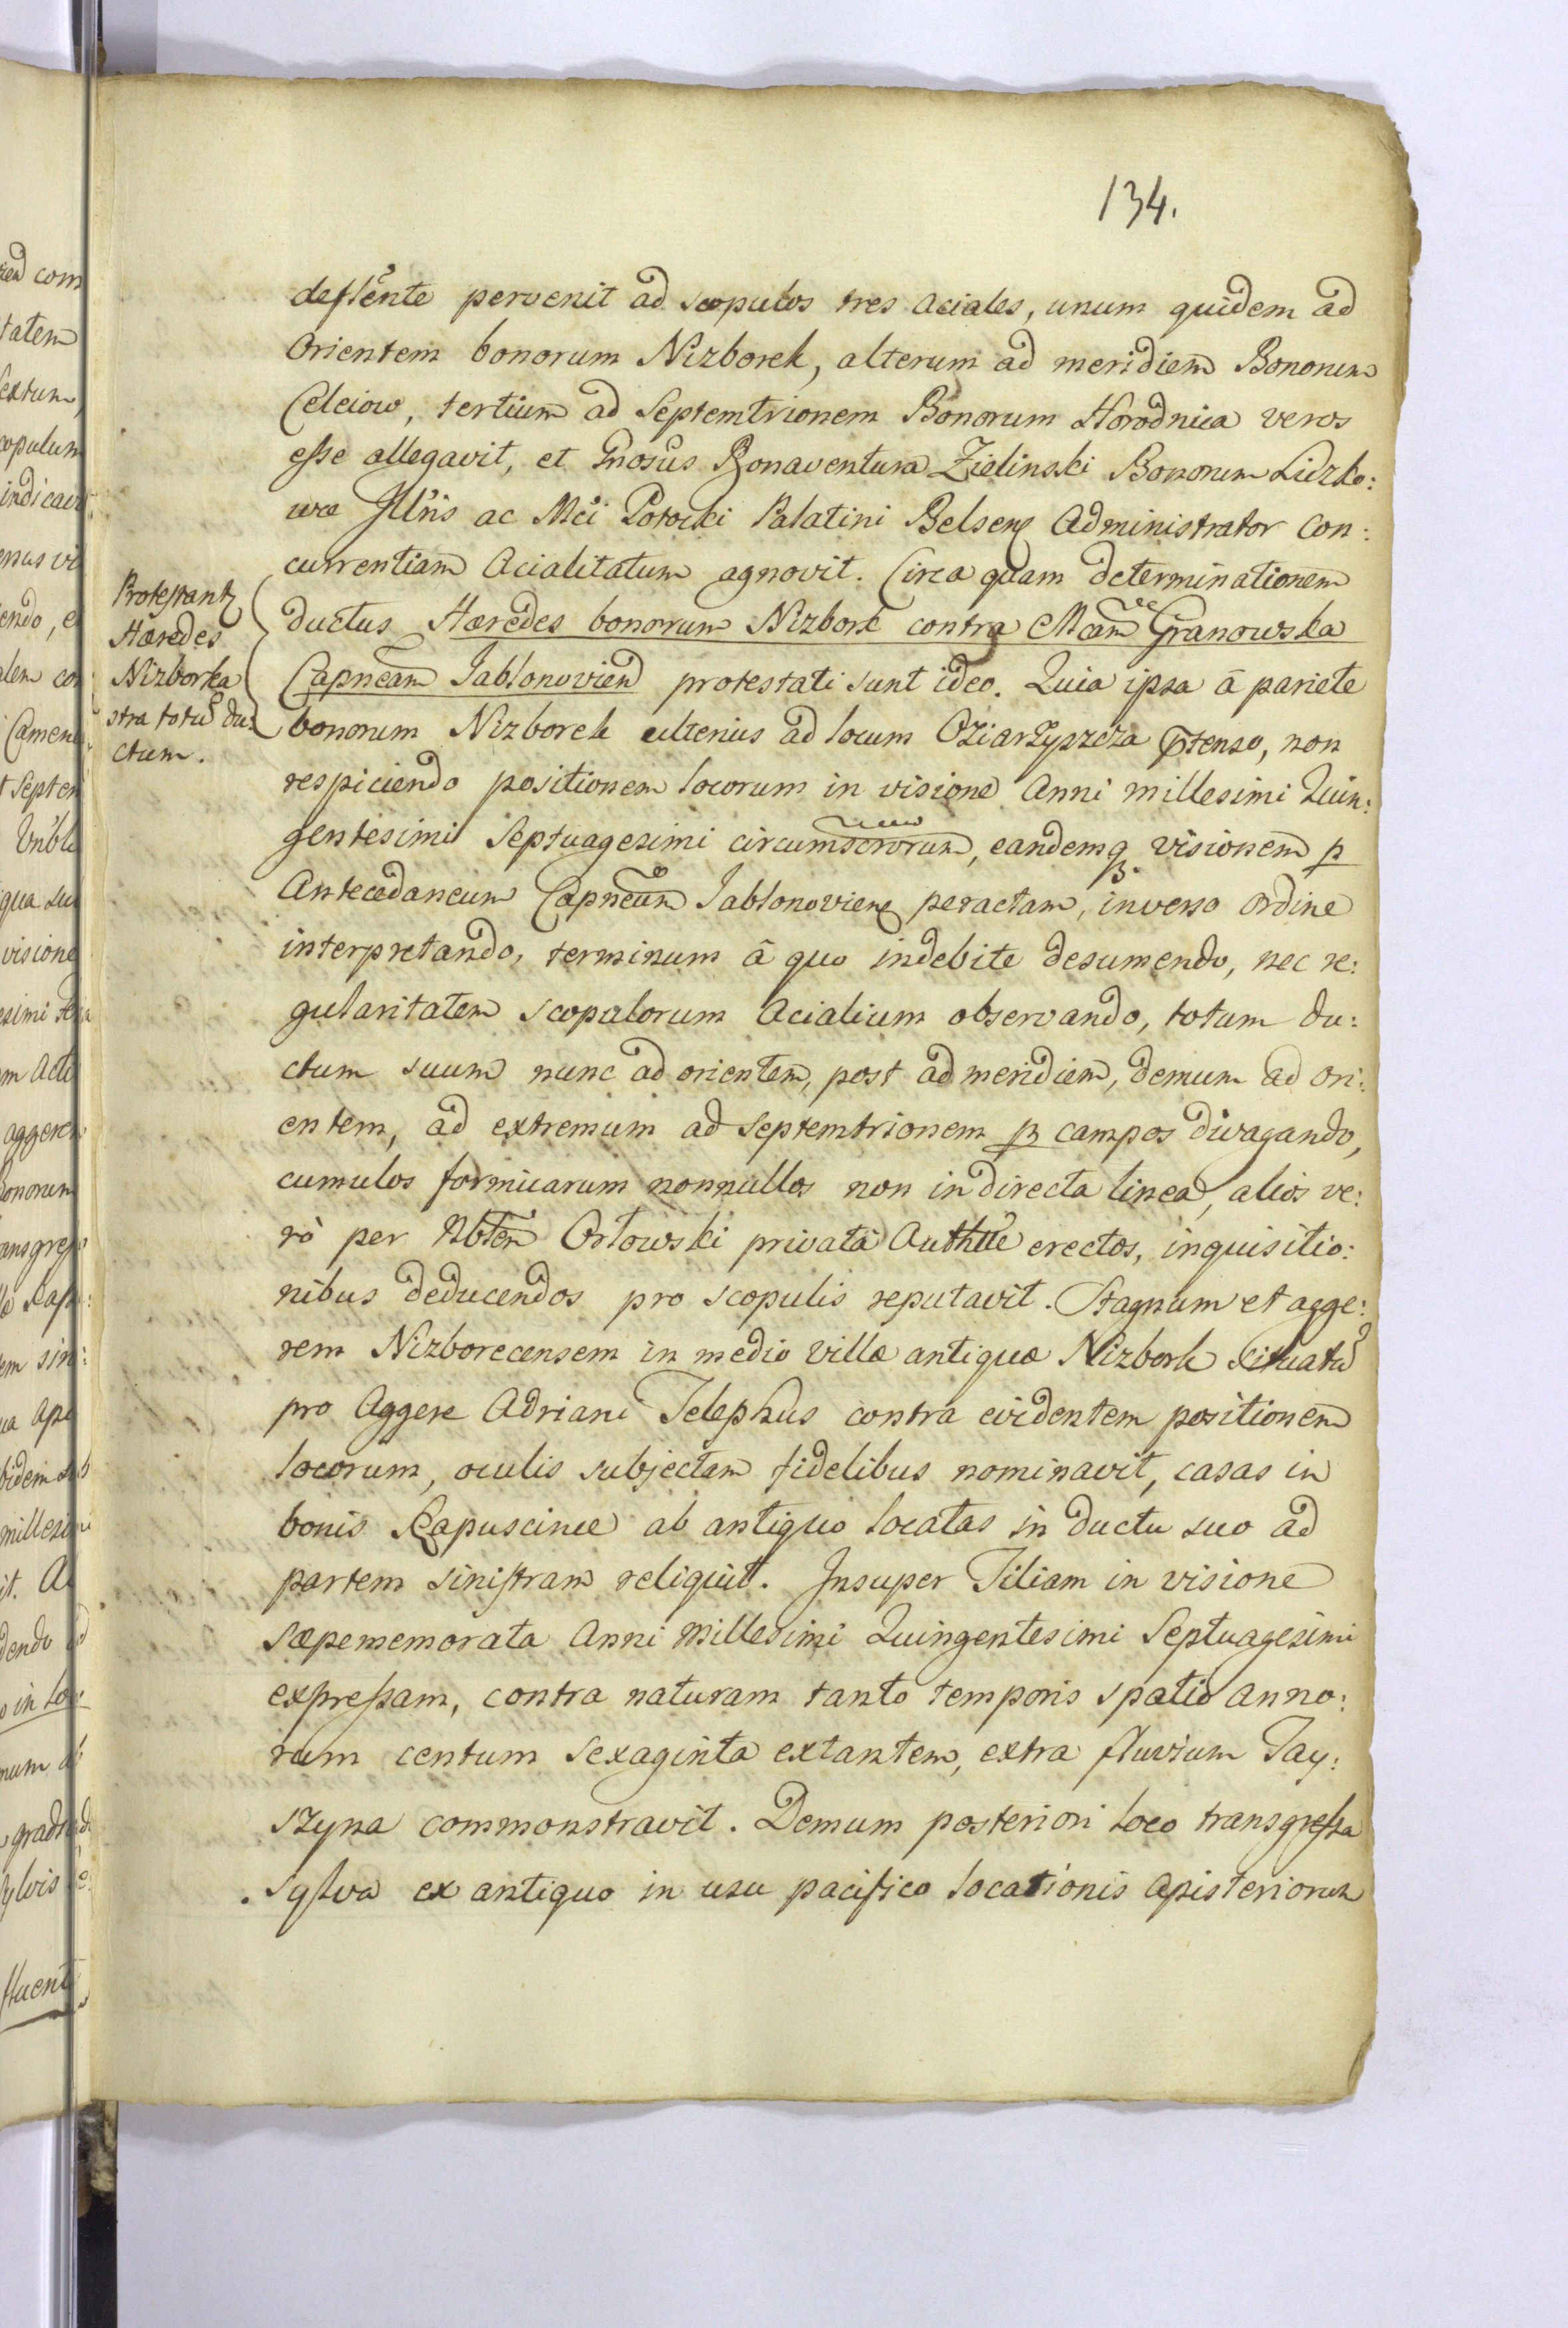 134.
deſſente pervenit ad scopulos tres aciales, unum quidem ad
Orientem bonorum Nizborek, alterum ad meridiem Bonorum
Celeiow, tertium ad Septemtrionem Bonorum Horodnica veros
eſse allegavit, et Gnosus Bonaventura Zielinski Bonorum Lidzko:
wce Jllris ac Mci Potocki Palatini Belsen Administrator Con:
currentiam Acialitatum agnovit. Circa quam determinationem
ductus Hæredes bonorum Nizbork contra Mcam Granowska
Capneam Jablonovien protestati sunt ideo. Quia ipsa à pariete
bonorum Nizborek ulterius ad locum Oziaryszcza ptenso, non
respiciendo positionem locorum in visione Anni millesimi Quin:
gentesimi Septuagesimi circum, eandemq visionem p
Antecedaneum Capneum Jablonovien peractam, inverso ordine
interpretando, terminum à quo indebite desumendo, nec re:
gularitatem scopulorum Acialium observando, totum du:
ctum suum nunc ad orientem, post ad meridiem, demum ad ori:
entem, ad extremum ad septemtrionem p campos divagando,
cumulos formicarum nonnullos non in directa linea, alios ve:
rò per Nbtem Orlowski privatâ Authtte erectos, inquisitio:
nibus deducendos pro scopulis reputavit. Stagnum et agge:
rem Nizborecensem in medio villæ antiquæ Nizbork situatu
pro Aggere Adriani Telephus contra evidentem positionem
locorum, oculis subjectam fidelibus nominavit, casas in
bonis Kapuscince ab antiquo locatas in ductu suo ad
partem siniſtram reliquit. Insuper Tiliam in visione
Sæpememorata Anni Millesimi Quingentesimi Septuagesimi
expreſsam, contra naturam tanto temporis spatio anno:
rum centum sexaginta extantem, extra fluvium Tay:
szyna commonstravit. Demum posteriori loco transgreſsa
Sylva ex antiquo in usu pacifico locationis Apisteriorum
Protestantz
Hæredes
Nizborka
stra totu du:
ctum.